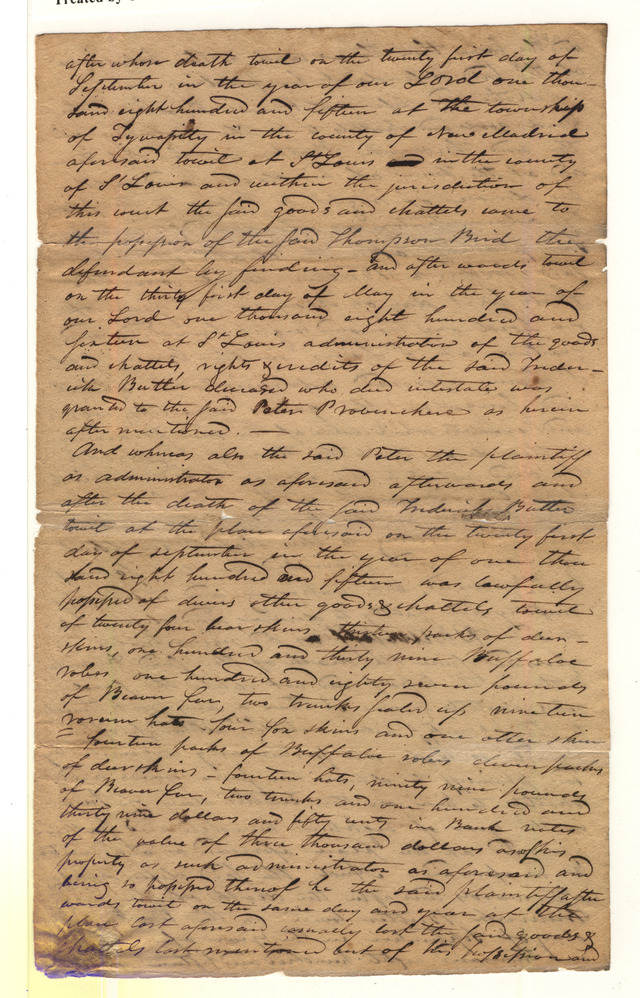 after whose death towit on the twenty first day of
September in the year of our Lord one thou-
sand eight hundred and fifteen at the township
of Tywapitty in the county of New Madrid
aforesaid towit at St Louis in the county
of St Louis and within the jurisdiction of
this court the said goods and chattels came to
the possession of the said Thompson Bird the
defendant by finding - and after wards towit
on the thirty first day of May in the year of
our Lord one thousand eight hundred and
sixteen at St Louis administration of the goods
and chattels, rights & credits of the said Freder-
ick Butler deceased who died intestate was
granted to the said Peter Provenchere as herein
after mentioned. —
And whereas also the said Peter the plaintiff
as administrator as aforesaid afterwards and
after the death of the said Frederick Butler
towit at the place aforesaid on the twenty first
day of september in the year of one thou
sand eight hundred and fifteen was lawfully
possessed of divers other goods & chattels towit
of twenty four bear skins, packs of deer-
skins, one hundred and thirty nine Buffaloe
robes, one hundred and eighty seven pounds
of Beaver fur, two trunks sealed up nineteen
roram hats four fox skins and one otter skin
fourteen packs of Buffaloe robes eleven packs
of deerskins - fourteen hats, ninety nine pounds
of Beaver fur, two trunks and one hundred and
thirty nine dollars and fifty cents in Bank notes
of the value of three thousand dollars as of his
property as such administrator as aforesaid and
being so possessed thereof he the said plaintiff after
wards towit on the same day and year at the
place last aforesaid casually lost the said goods &
chattels last mentioned out of his possession and